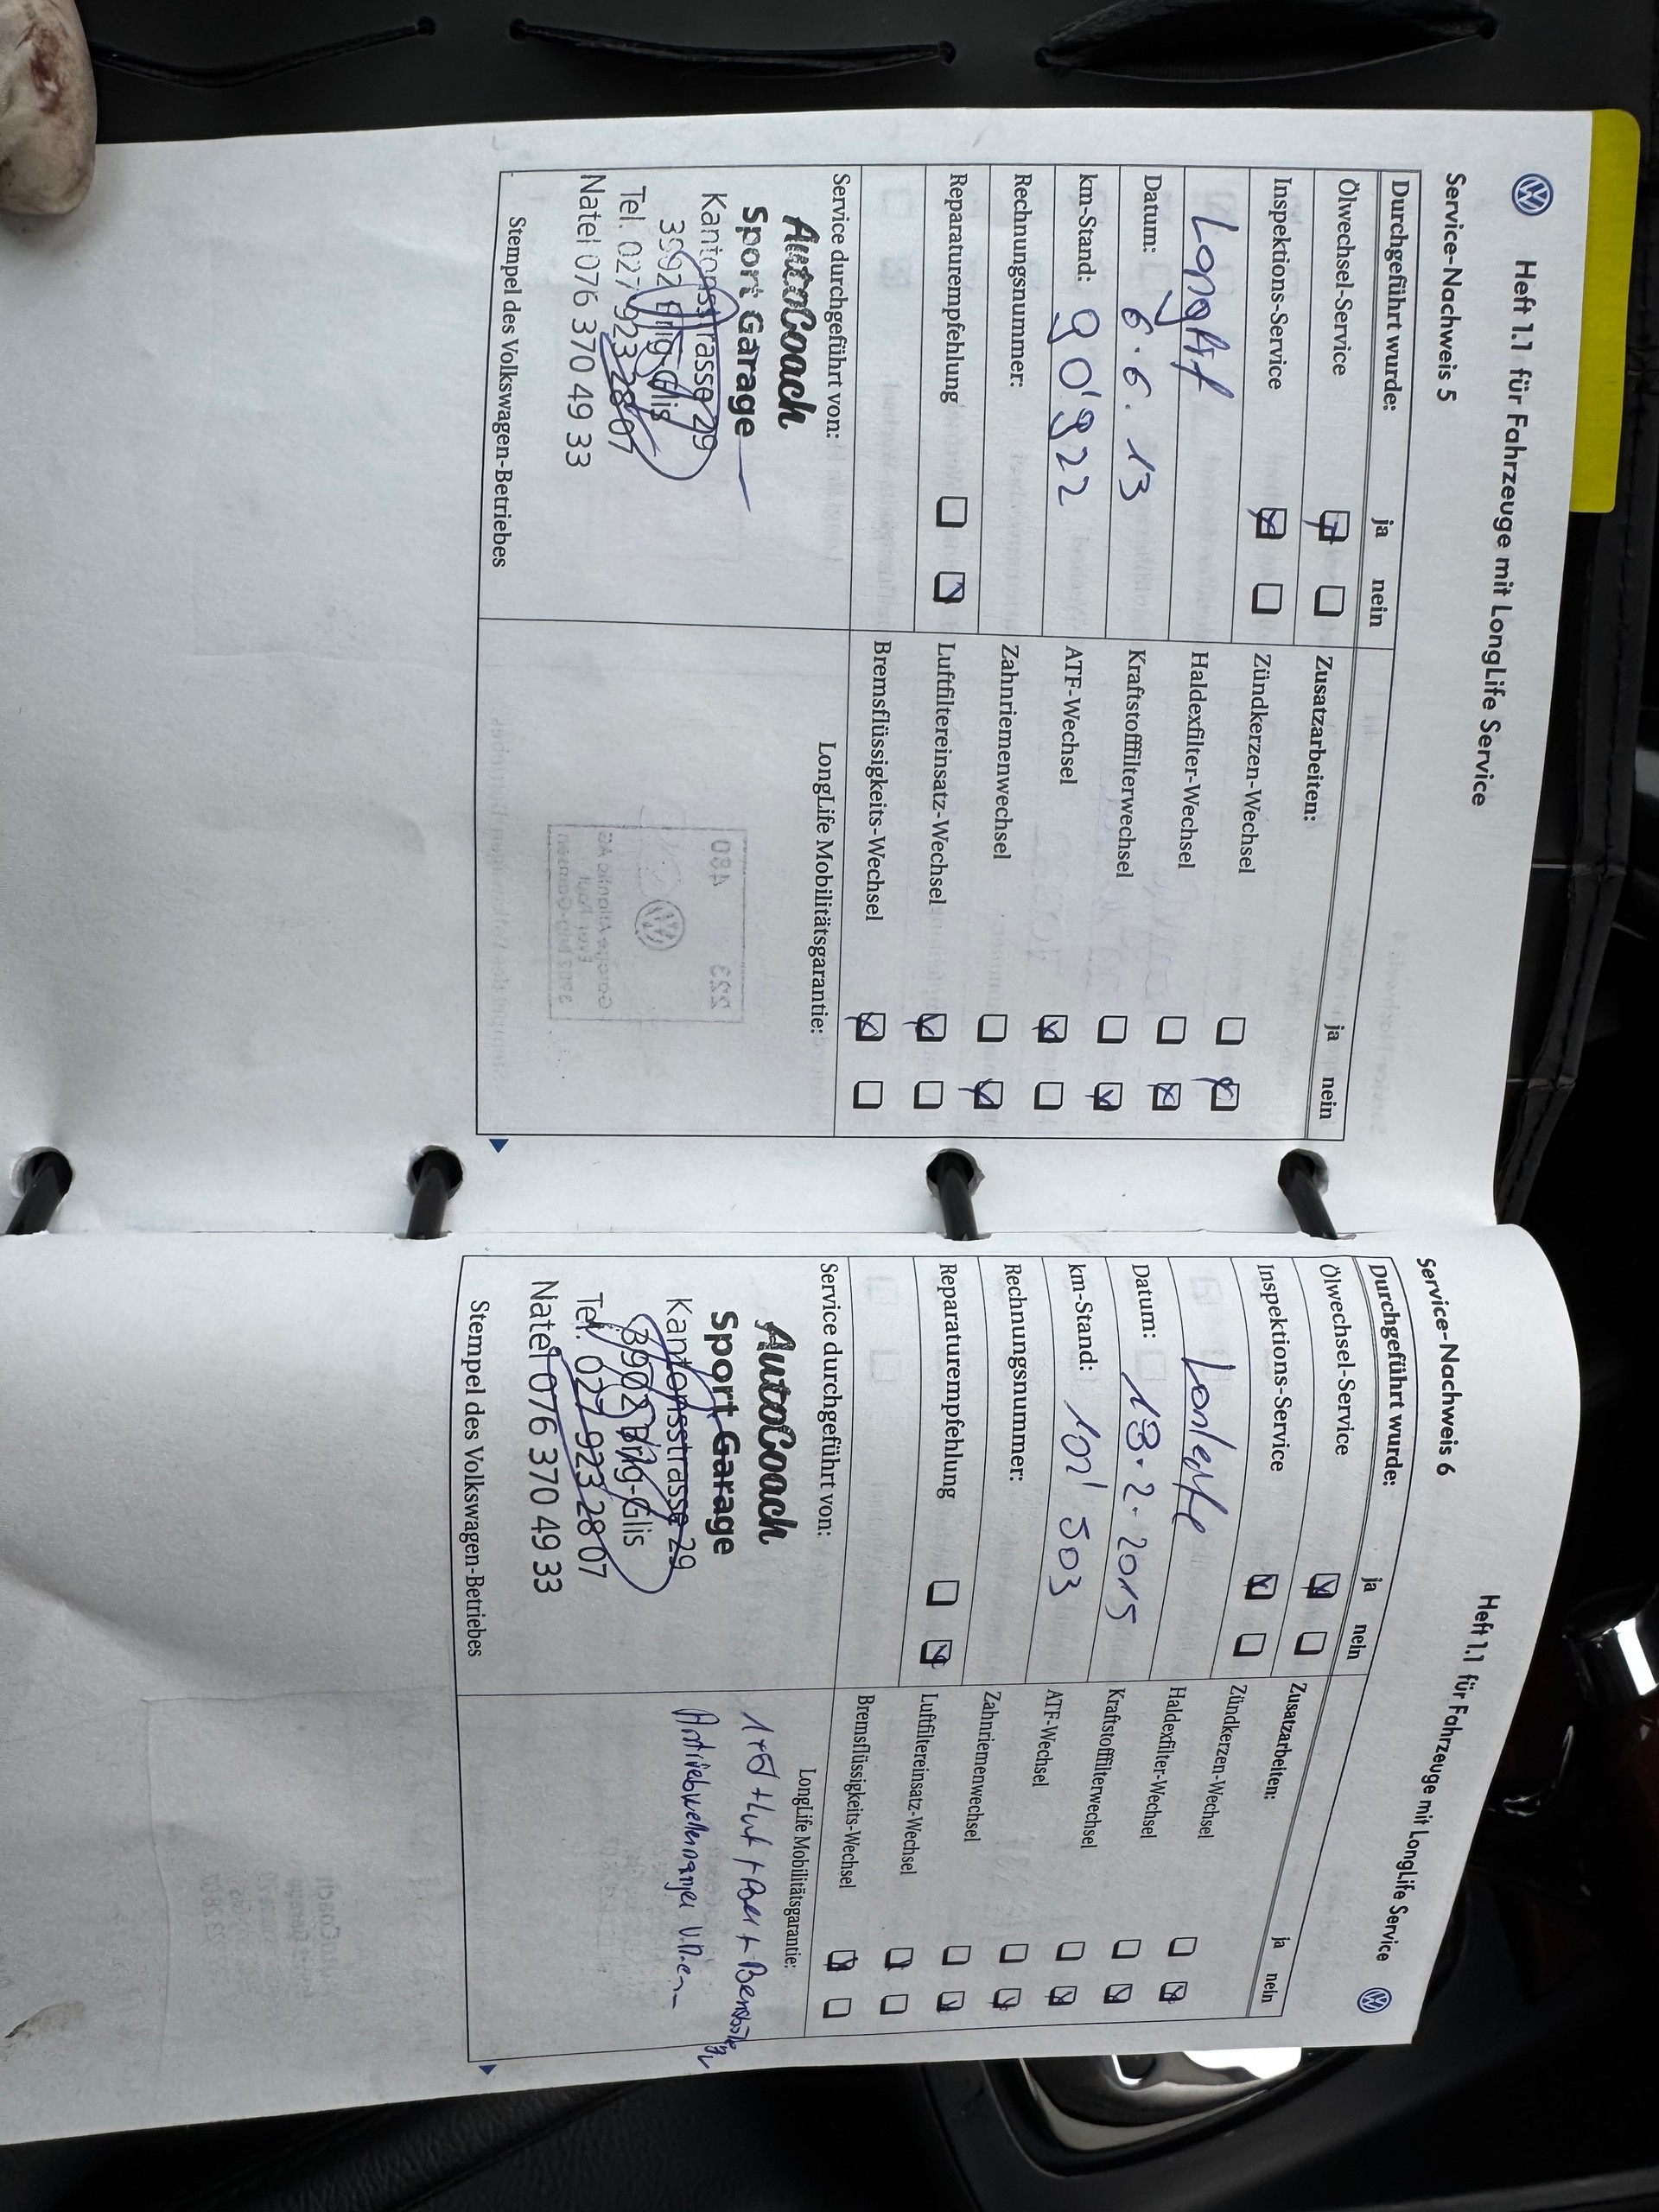 Heft 1.1 für Fahrzeuge mit LongLife Service
Service-Nachweis 5
Durchgeführt wurde: ja nein
Ölwechsel-Service
Inspektions-Service
Datum: 6.6.13
km-Stand: 90'922
Rechnungsnummer:
Reparaturempfehlung
Zusatzarbeiten: ja nein
Zündkerzen-Wechsel
Haldexfilter-Wechsel
Kraftstofffilterwechsel
ATF-Wechsel
Zahnriemenwechsel
Luftfiltereinsatz-Wechsel
Bremsflüssigkeits-Wechsel
Service durchgeführt von:
AutoCoach
Sport Garage
Kantonsstrasse 29
3902 Brig-Glis
Tel. 027 923 28 07
Natel 076 370 49 33
Stempel des Volkswagen-Betriebes
LongLife Mobilitätsgarantie:
Heft 1.1 für Fahrzeuge mit LongLife Service
Service-Nachweis 6
Durchgeführt wurde: ja nein
Ölwechsel-Service
Inspektions-Service
Datum: 18.2.2015
km-Stand: 102'503
Rechnungsnummer:
Reparaturempfehlung
Zusatzarbeiten: ja nein
Zündkerzen-Wechsel
Haldexfilter-Wechsel
Kraftstofffilterwechsel
ATF-Wechsel
Zahnriemenwechsel
Luftfiltereinsatz-Wechsel
Bremsflüssigkeits-Wechsel
Service durchgeführt von:
AutoCoach
Sport Garage
Kantonsstrasse 29
3902 Brig-Glis
Tel. 027 923 28 07
Natel 076 370 49 33
Stempel des Volkswagen-Betriebes
LongLife Mobilitätsgarantie: